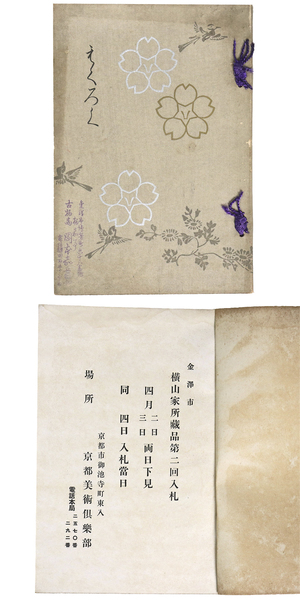 もくろく
金澤市
横山家所藏品第二回入札
四月 二日 三日 両日下見
同 四日 入札當日
場所
京都市御池寺町東入
京都美術倶樂部
電話本局 二五七〇番 二九二番